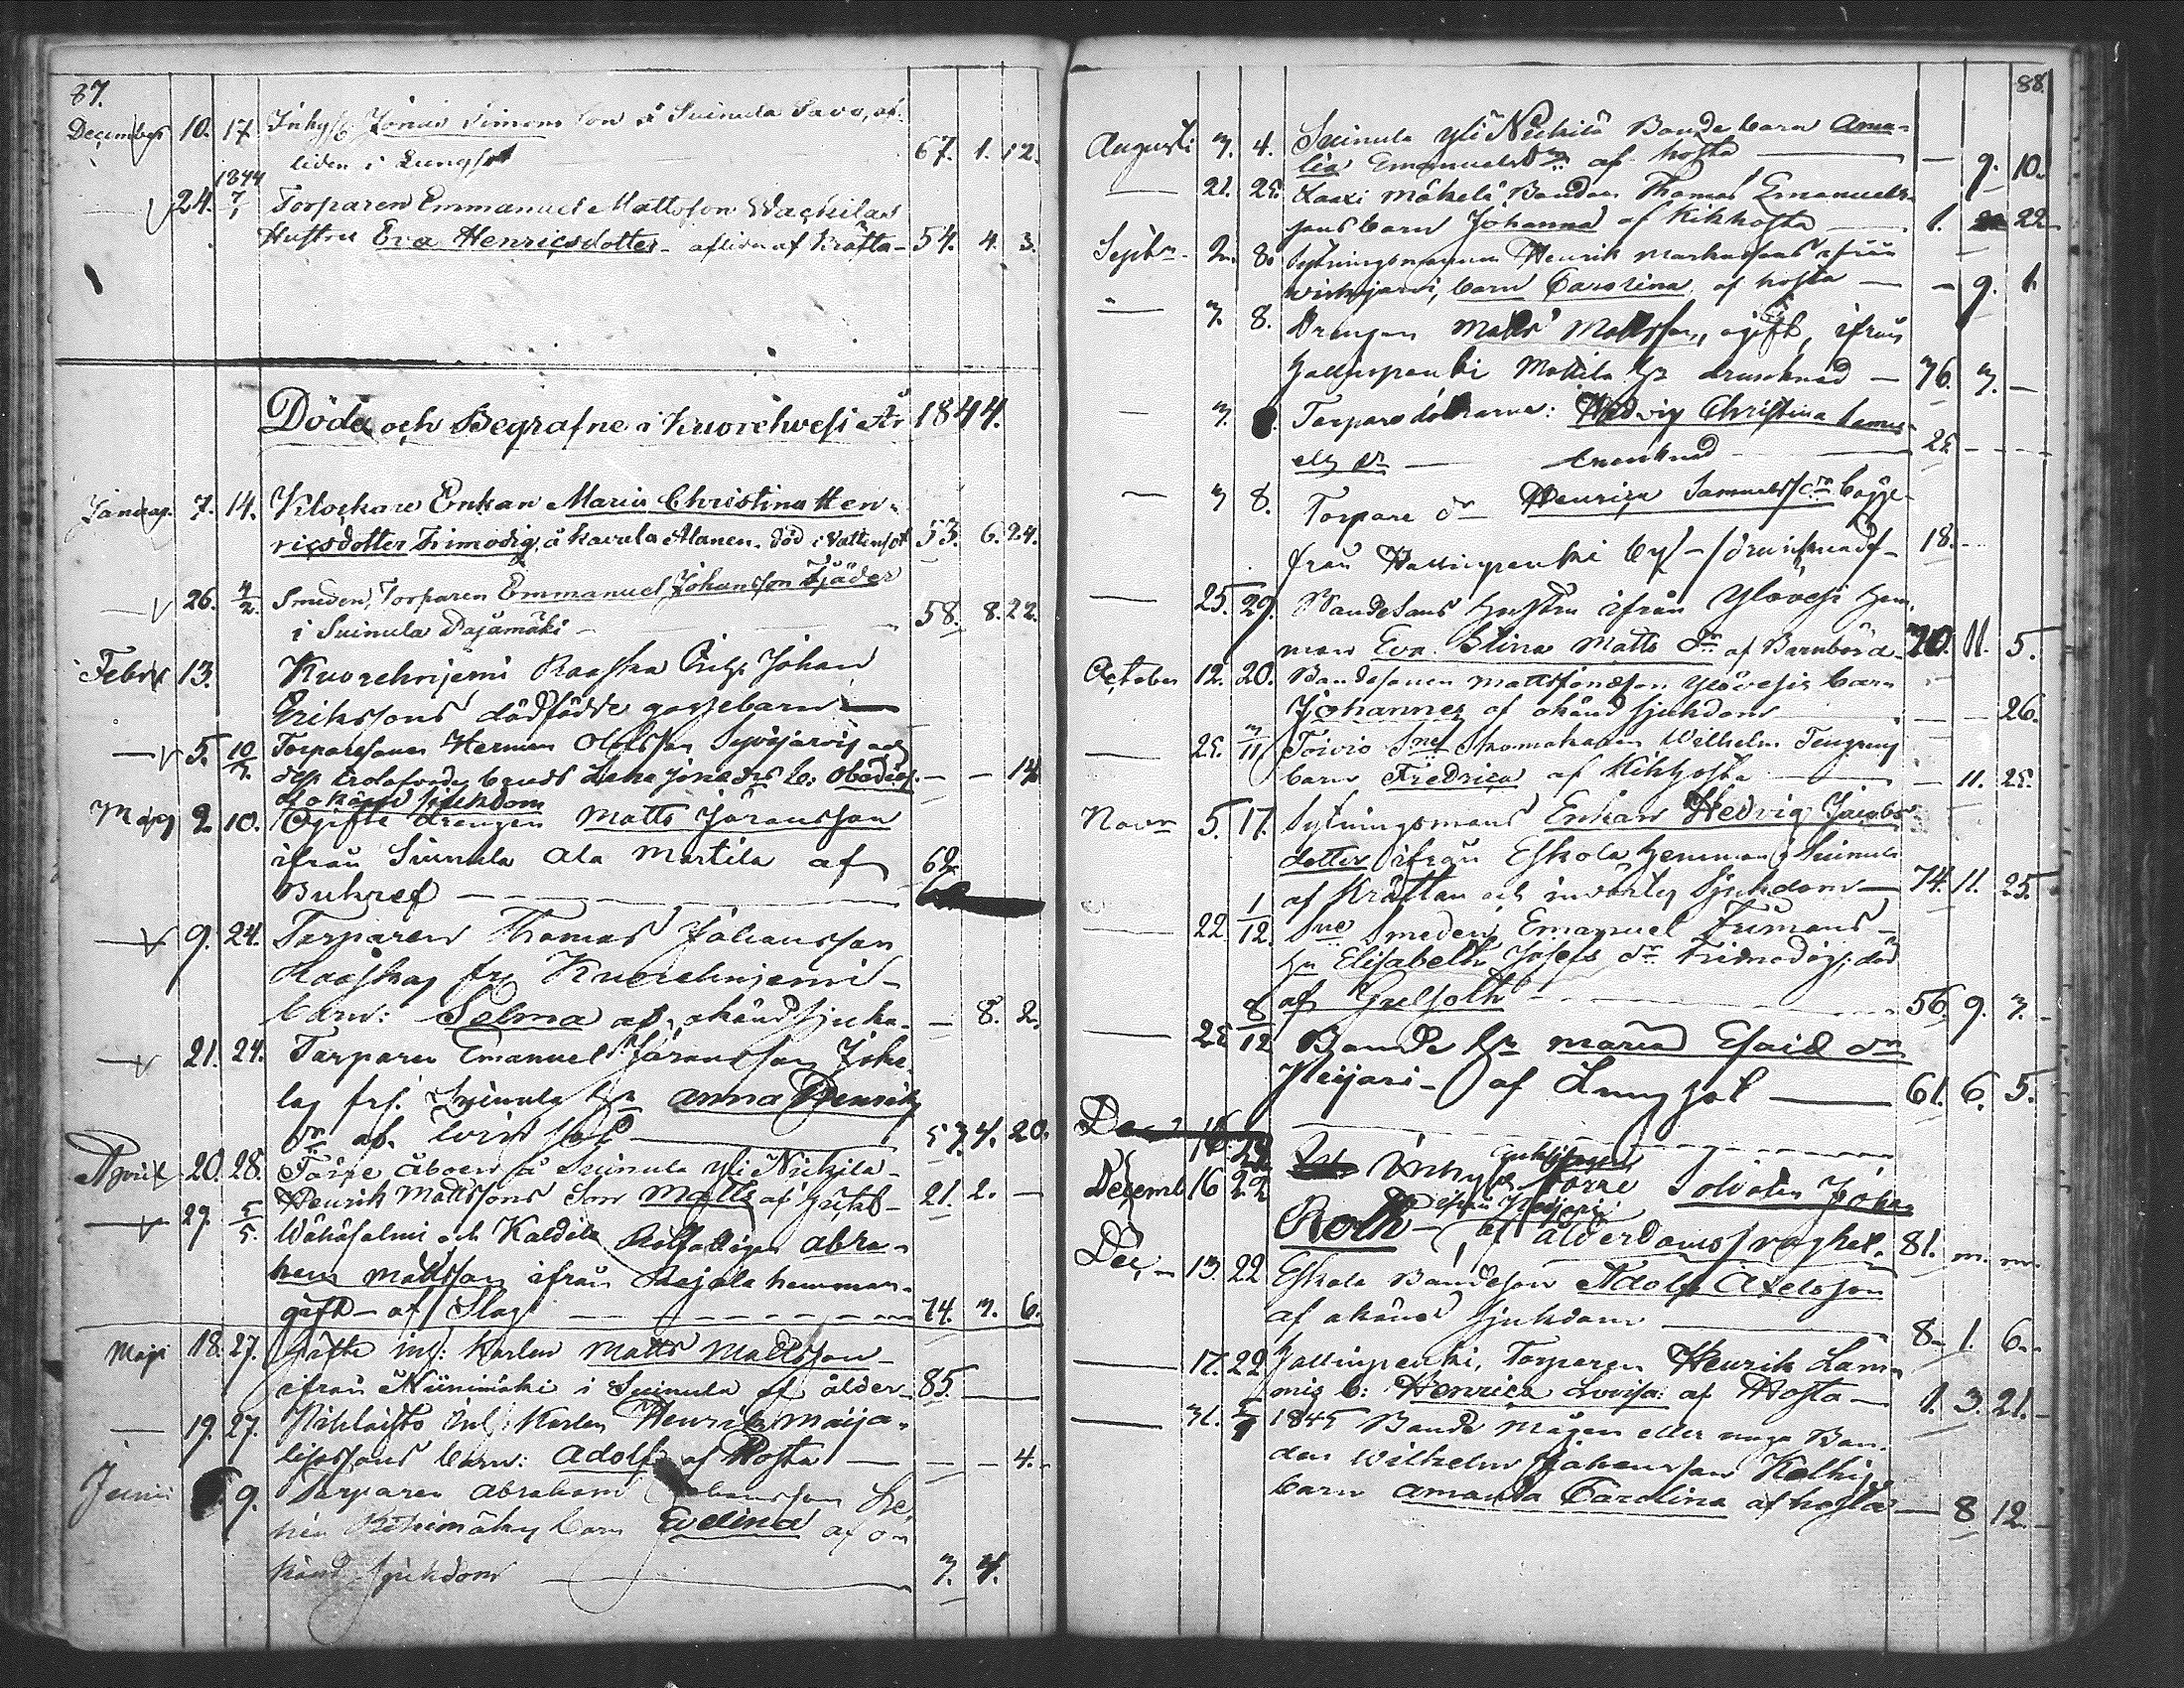 87.
December 10. 17. Inhys. Jonas Simons son å Suinula Savo, af-
liden i Lungsot 67. 1. 12.
24. 1844 7/1 Torparen Emmanuel Mattsson Wachilas
Hustru Eva Henricsdotter - afliden af Kräfta - 54. 4. 3.
Döde och Begrafne i Kuorehvesi År 1844.
Januar. 7. 14. Klockare Enkan Maria Christina Hen-
ricsdotter Frimodig, å Kavala Alanen. död i Vattensot 53. 6. 24.
26. 4/2. Smeden, Torparen Emmanuel Johansson Fjäder
i Suinula Pajamäki - 58. 8. 22.
Febr 13. Kuorehniemi Raaska Inhys Johan
Erikssons dödfödde gossebarn
5. 10/3. Torparesonen Herman Olofsson Syväjärvis och
Lena Jonæ drs b: Obadias - - 14
af okänd sjukdom
Marij 2. 10. Ogifte drengen Matts Jöransson
ifrån Suinula Ala Martila af 62
Buhref
9. 24. Torparen Thomas Johansson
Raaskas fr. Kuorehniemi
barn: Selma af okänd sjukd. - 8. 2.
21. 24. Torparen Emanuel Jöransson Joke-
las frs. Suinula hu Anna Henriks
dr af 57. 4. 20.
April 20. 28. Torpe åboen å Suinula Yli Nickilä
Henrik Mattssons Son Matts af Gikt - 21. 2. -
29. 5/5. Wähäsalmi och Kaldila Rotfattigen Abra-
ham Mattsson ifrån Rajala hemman
gift - af Slag 74. 7. 6.
Maji 18. 27. Gifte inh: Karlen Matts Mattsson
ifrån Niinimäki i Suinula af ålder - 85.
19. 27. Pihlaisto Inh. Karlen Henrik Maija-
lissons barn: Adolf af Hosta - - - 4.
Junii 9. Torparen Abraham Johansson
Riihimäkis barn Evelina af o-
känd Sjukdom 7. 4.
88.
Augusti 3. 4. Suinula Yli Nickilä Bonde barn Ama-
lia Emanuels dr af hosta - 9. 10.
21. 25. Laaxi Mäkelä Bonden Thomas Emanuels-
sons barn Johanna af Kikhosta 1. 22
Septbr. 2. 8. Sytningsmannen Henrik Markussons ifrån
Wirkajärvi, barn Carolina af hosta - - 9. 1.
7. 8. Drengen Matts Mattsson, ogift, ifrån
Hallinpenki Mattila by drunknad - 76. 7. -
7. Torparedöttrarne: Hedvig Christina Samu-
els dr drunknad 25 - -
7 8. Torpare dr Henrica Samuelsdr begge
från Hallinpenki by - drunknad - 18. -
25. 29. Bondesons hustru ifrån Ylövesi hem-
man Eva Stina Matts dr af Barnbörd 20. 11. 5.
October 12. 20. Bondesonen Mattssons son Ylövesis barn
Johannes af okänd sjukdom - - 26.
25. 3/11 Toivio Skomakaren Wilhelm Tengrens
barn Fredrica af Kikhosta - 11. 25.
Novr 5. 17. Sytningsmans Enkan Hedvig Jacobs
dotter ifrån Eskola hemman i Suinula
af Kräftan och invärtes Sjukdom - 74. 11. 25.
22. 1/12. Smeden Emanuel Frimans
hu Elisabeth Josefs dr Frimodig; död
af Gulsoth 56. 9. 3.
25 8/12 Bonde hu Maria Esaid dr
Heijari - af Lungsot 61. 6. 5.
Dec 16. 22
Decemb 16 22 Inhys Torpe Soldaten Johan
Roth - ifrån Heijari af ålderdomssvaghet. 81. m. m.
Dec. 13. 22 Eskola Bondeson Adolf Axelsson
af okänd sjukdom 8 - 1. 6.
17. 22. Hallinpenki, Torparen Henrik Lam-
mis b: Henrica Lovisa: af Hosta - 1. 3. 21.
31. 1845 Bonde Mågen eller unga Bon-
den Wilhelm Johansson Kelhis
barn Amanda Carolina af hosta - 8 12.